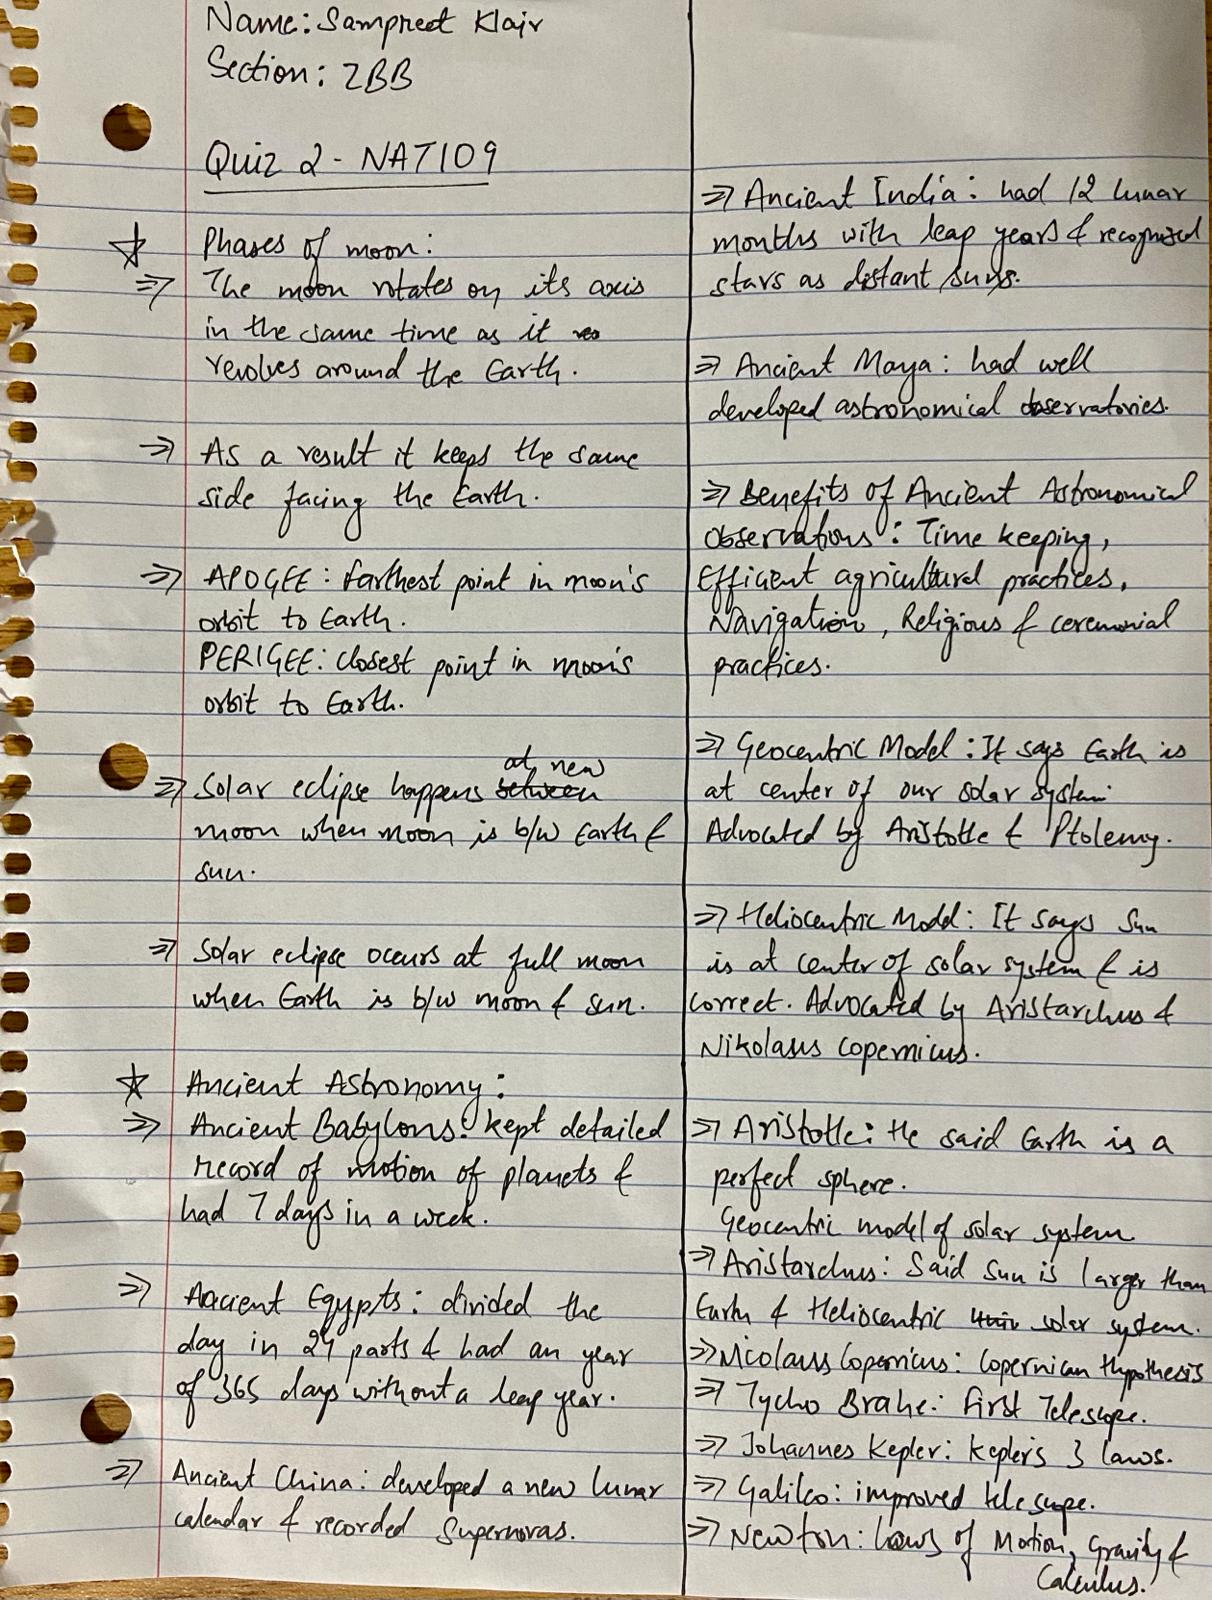 Name: Sampreet Klair
Section: ZBB
Quiz 2 - NAT109
Phases of moon:
⇒ The moon rotates on its axis
in the same time as it
revolves around the Earth.
⇒ As a result it keeps the same
side facing the Earth.
⇒ APOGEE: farthest point in moon's
orbit to Earth.
PERIGEE: closest point in moon's
orbit to Earth.
at new
⇒ Solar eclipse happens between
moon when moon is b/w Earth &
sun.
⇒ Solar eclipse occurs at full moon
when Earth is b/w moon & sun.
Ancient Astronomy:
⇒ Ancient Babylons: kept detailed
record of motion of planets &
had 7 days in a week.
⇒ Ancient Egypts: divided the
day in 24 parts & had an year
of 365 days without a leap year.
⇒ Ancient China: developed a new lunar
calendar & recorded Supernovas.
⇒ Ancient India: had 12 lunar
months with leap years & recognized
stars as distant suns.
⇒ Ancient Maya: had well
developed astronomical observatories.
⇒ Benefits of Ancient Astronomical
Observations: Time keeping,
Efficient agricultural practices,
Navigation, Religious & ceremonial
practices.
⇒ Geocentric Model: It says Earth is
at center of our solar system.
Advocated by Aristotle & Ptolemy.
⇒ Heliocentric Model: It says Sun
is at center of solar system & is
correct. Advocated by Aristarchus &
Nikolaus Copernicus.
⇒ Aristotle: He said Earth is a
perfect sphere.
Geocentric model of solar system
⇒ Aristarchus: Said Sun is larger than
Earth & Heliocentric solar system.
⇒ Nicolauss Copernicus: Copernican Hypothesis
⇒ Tycho Brahe: First Telescope.
⇒ Johannes Kepler: Kepler's 3 laws.
⇒ Galileo: improved telescope.
⇒ Newton: Laws of Motion, Gravity &
Calculus.